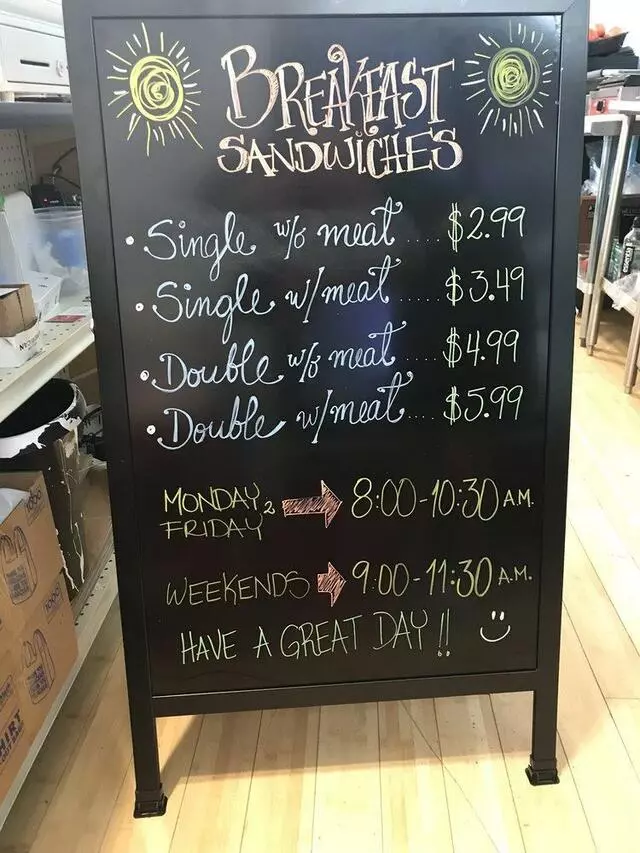 BREAKFAST
SANDWICHES
• Single w/o meat .... $2.99
• Single w/meat ..... $3.49
• Double w/o meat ... $4.99
• Double w/meat .... $5.99
MONDAY 2 → 8:00-10:30 A.M.
FRIDAY
WEEKENDS → 9:00-11:30 A.M.
HAVE A GREAT DAY !!